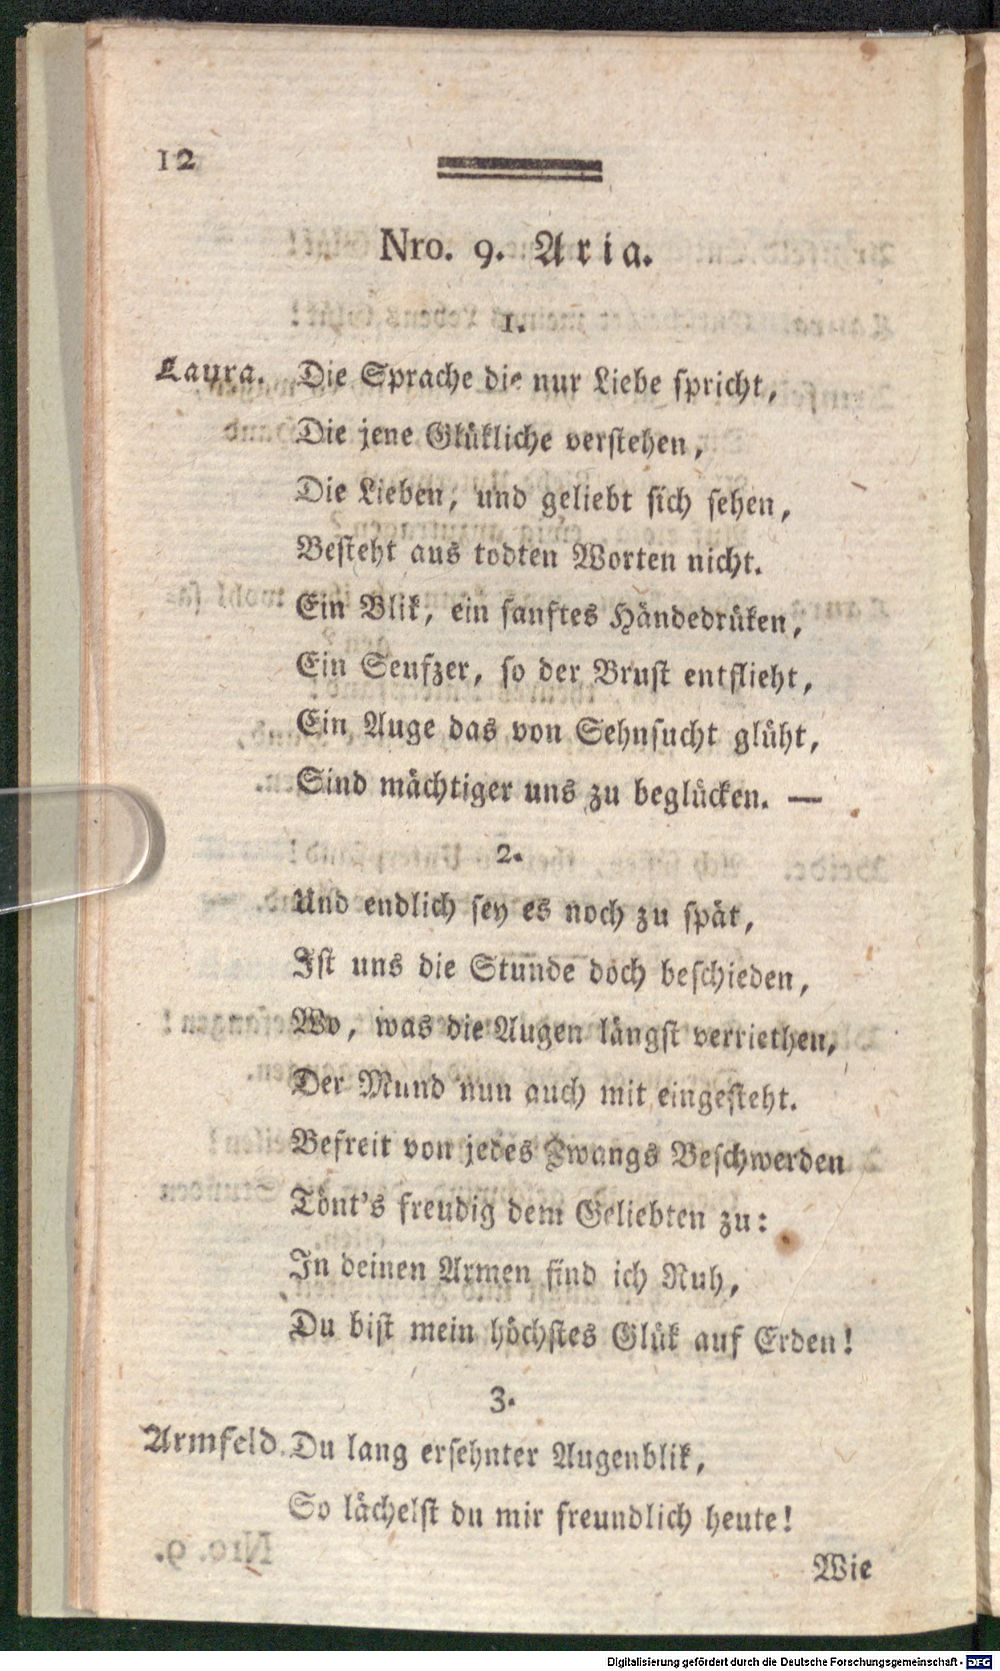 12
Nro. 9. Aria.
1.
Laura. Die Sprache die nur Liebe spricht,
Die jene Glükliche verstehen,
Die Lieben, und geliebt sich sehen,
Besteht aus todten Worten nicht.
Ein Blik, ein sanftes Händedrüken,
Ein Seufzer, so der Brust entflieht,
Ein Auge das von Sehnsucht glüht,
Sind mächtiger uns zu beglücken. —
2.
Und endlich sey es noch zu spät,
Ist uns die Stunde doch beschieden,
Wo, was die Augen längst verriethen,
Der Mund nun auch mit eingesteht.
Befreit von jedes Zwangs Beschwerden
Tönt's freudig dem Geliebten zu:
In deinen Armen find ich Ruh,
Du bist mein höchstes Glük auf Erden!
3.
Armfeld. Du lang ersehnter Augenblik,
So lächelst du mir freundlich heute!
Wie
Digitalisierung gefördert durch die Deutsche Forschungsgemeinschaft - DFG